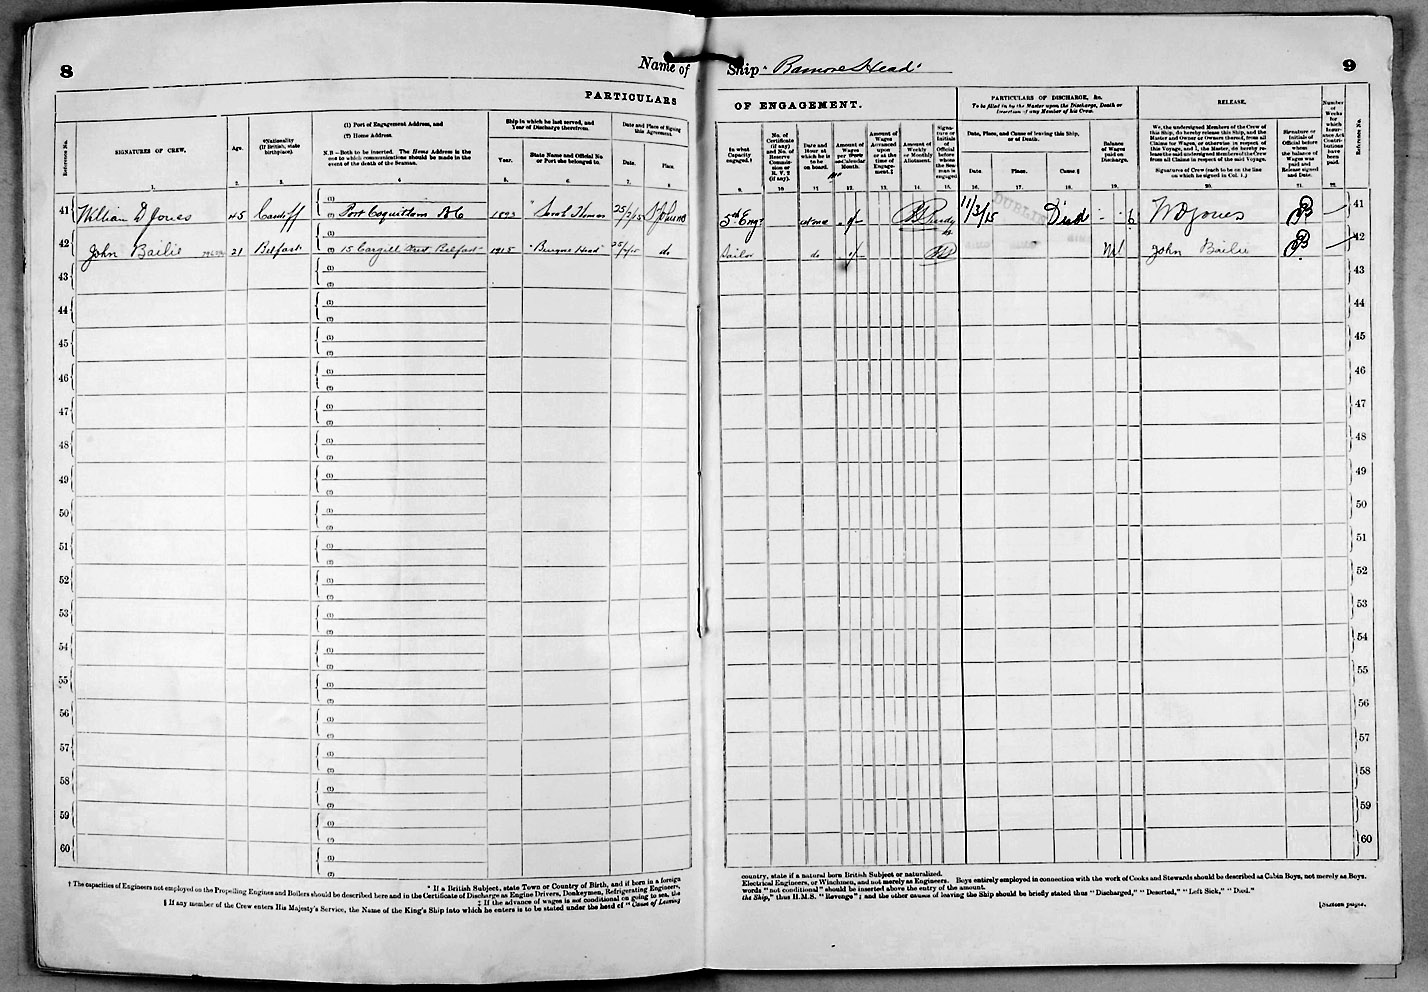 8
Name of Ship "Ramore Head"
9
PARTICULARS OF ENGAGEMENT.
PARTICULARS OF DISCHARGE, &c.
To be filled in by the Master upon the Discharge, Death or Desertion of any Member of his Crew.
RELEASE.
Reference No.
SIGNATURES OF CREW.
Age.
*Nationality
(If British, state
birthplace).
(1) Port of Engagement Address, and
(2) Home Address.
N.B.—Both to be inserted. The Home Address is the
one to which communications should be made in the
event of the death of the Seaman.
Ship in which he last served, and
Year of Discharge therefrom.
Year.
State Name and Official No
or Port she belonged to.
Date and Place of Signing
this Agreement.
Date.
Place.
In what
Capacity
engaged.†
No. of
Certificate
(if any)
and No. of
Reserve
Commission
or
R. V. 2
(if any).
Date and
Hour at
which he is
to be
on board.
Amount of
Wages
per
Calendar
Month.
Amount of
Wages
Advanced
upon
or at the
time of
Engagement.‡
Amount of
Weekly
or Monthly
Allotment.
Signature or
Initials
of
Official
before
whom
the Seaman is
engaged
Date, Place, and Cause of leaving this Ship,
or of Death.
Date.
Place.
Cause §
Balance
of Wages
paid on
Discharge.
We, the undersigned Members of the Crew of
this Ship, do hereby release this Ship, and the
Master and Owner or Owners thereof, from all
Claims for Wages, or otherwise in respect of
this Voyage, and I, the Master, do hereby release the said undersigned Members of the Crew
from all Claims in respect of the said Voyage.
Signatures of Crew (each to be on the line
on which he signed in Col. 1.)
Signature or
Initials of
Official before
whom
the balance of
Wages was
paid and
Release signed
and Date.
Number
of
Weeks
for
which
Insurance Act
Contributions
have
been
paid.
Reference No.
1. 2. 3. 4 5. 6. 7. 8. 9. 10 11 12. 13. 14. 15. 16. 17. 18. 19. 20. 21. 22.
41 William D Jones 45 Cardiff (1) (2) Port Coquitlam BC 1893 "Sarah Thomas 25/2/15 St Johns NB 5th Engr at once 11/3/15 DUBLIN Disd 6 W D Jones 41
42 John Bailie 21 Belfast (1) (2) 15 Cargill Street Belfast 1915 "Bengore Head" 25/2/15 do Sailor do Nil John Bailie 42
43 (1) (2) 43
44 (1) (2) 44
45 (1) (2) 45
46 (1) (2) 46
47 (1) (2) 47
48 (1) (2) 48
49 (1) (2) 49
50 (1) (2) 50
51 (1) (2) 51
52 (1) (2) 52
53 (1) (2) 53
54 (1) (2) 54
55 (1) (2) 55
56 (1) (2) 56
57 (1) (2) 57
58 (1) (2) 58
59 (1) (2) 59
60 (1) (2) 60
* If a British Subject, state Town or Country of Birth, and if born in a foreign country, state if a natural born British Subject or naturalized.
† The capacities of Engineers not employed on the Propelling Engines and Boilers should be described here and in the Certificate of Discharge as Engine Drivers, Donkeymen, Refrigerating Engineers, Electrical Engineers, or Winchmen, and not merely as Engineers. Boys entirely employed in connection with the work of Cooks and Stewards should be described as Cabin Boys, not merely as Boys.
‡ If the advance of wages is not conditional on going to sea, the words "not conditional" should be inserted above the entry of the amount.
§ If any member of the Crew enters His Majesty's Service, the Name of the King's Ship into which he enters is to be stated under the head of "Cause of Leaving the Ship," thus H.M.S. "Revenge"; and the other causes of leaving the Ship should be briefly stated thus "Discharged," "Deserted," "Left Sick," "Died."
[Sixteen pages.